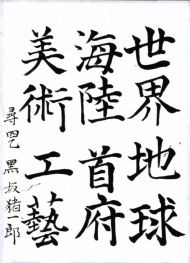 世界地球
海陸首府
美術工藝
尋四 黒坂猪一郎